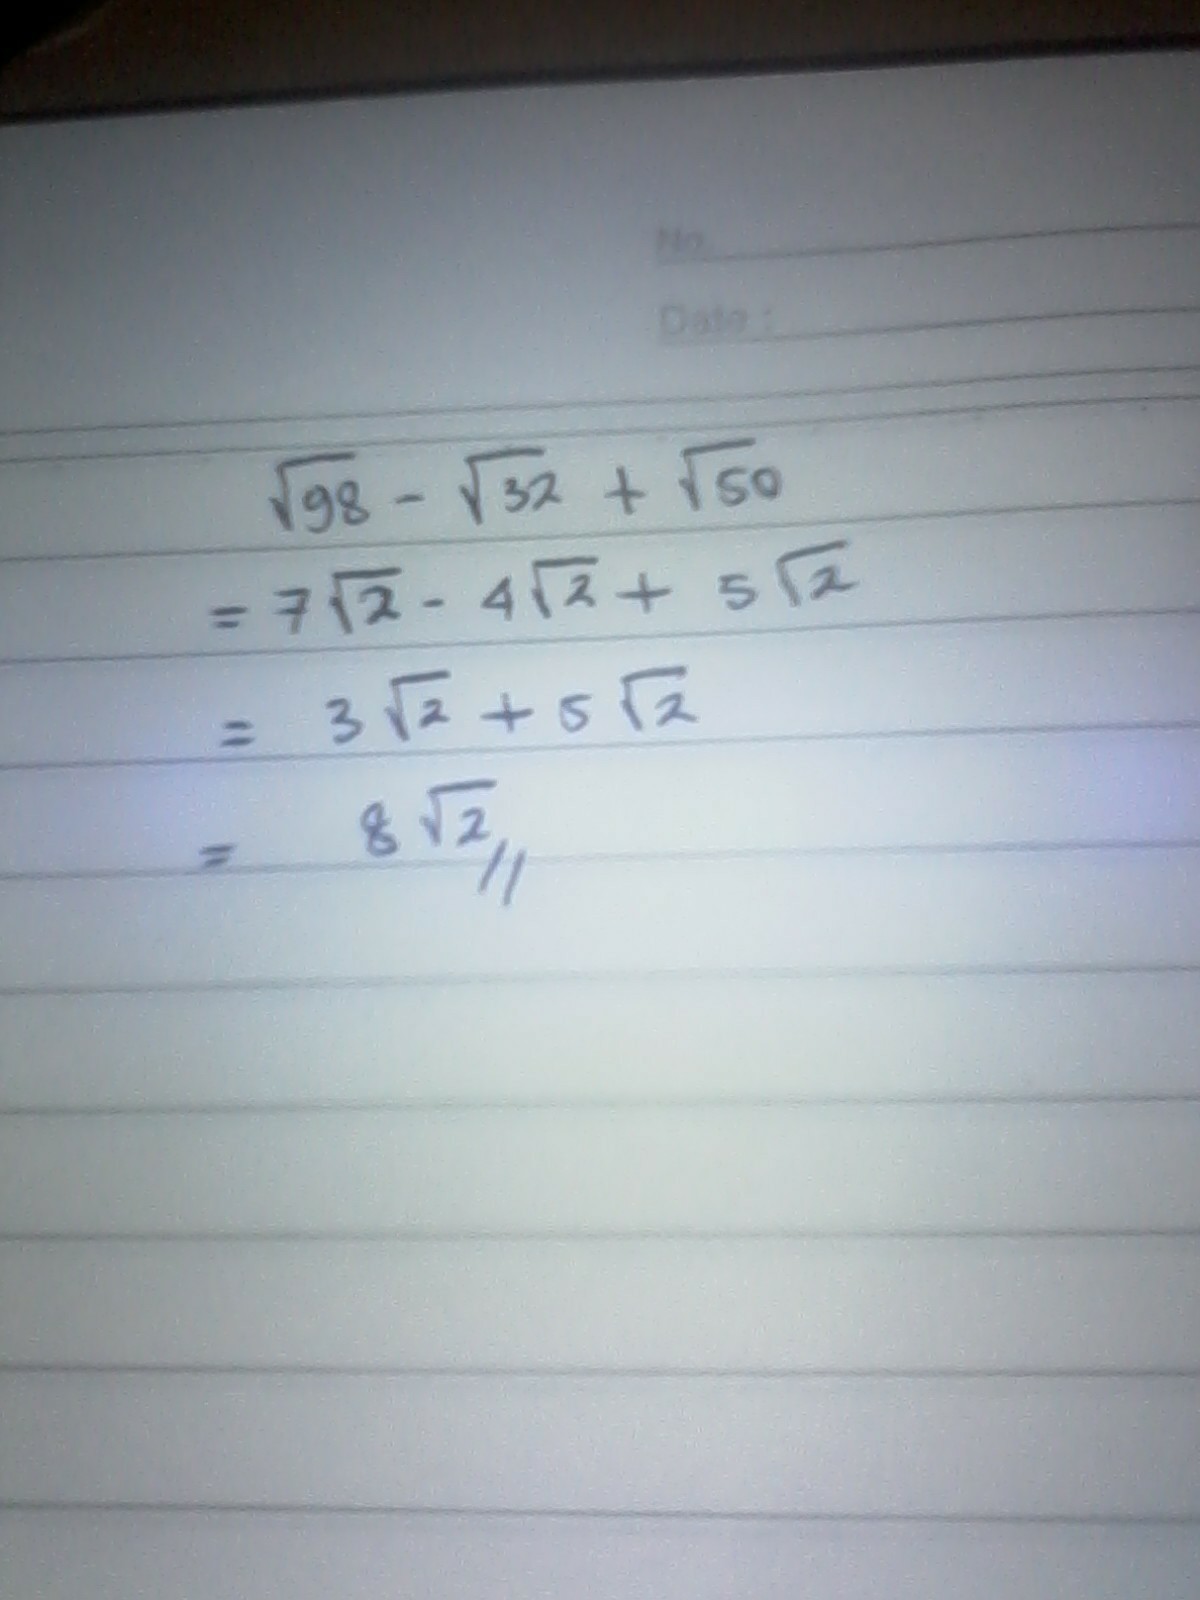 No.
Date :
√98 - √32 + √50
= 7√2 - 4√2 + 5√2
= 3√2 + 5√2
= 8√2//